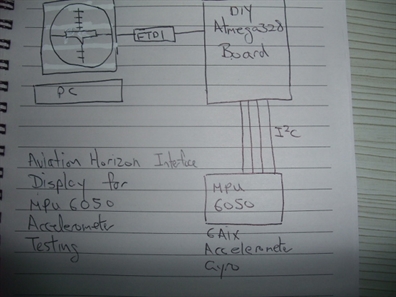 DIY
Atmega328
Board
FTDI
PC
I²C
Aviation Horizon Interface
Display for
MPU 6050
Accelerometer
Testing
MPU
6050
6Aix
Accelerometer
Gyro